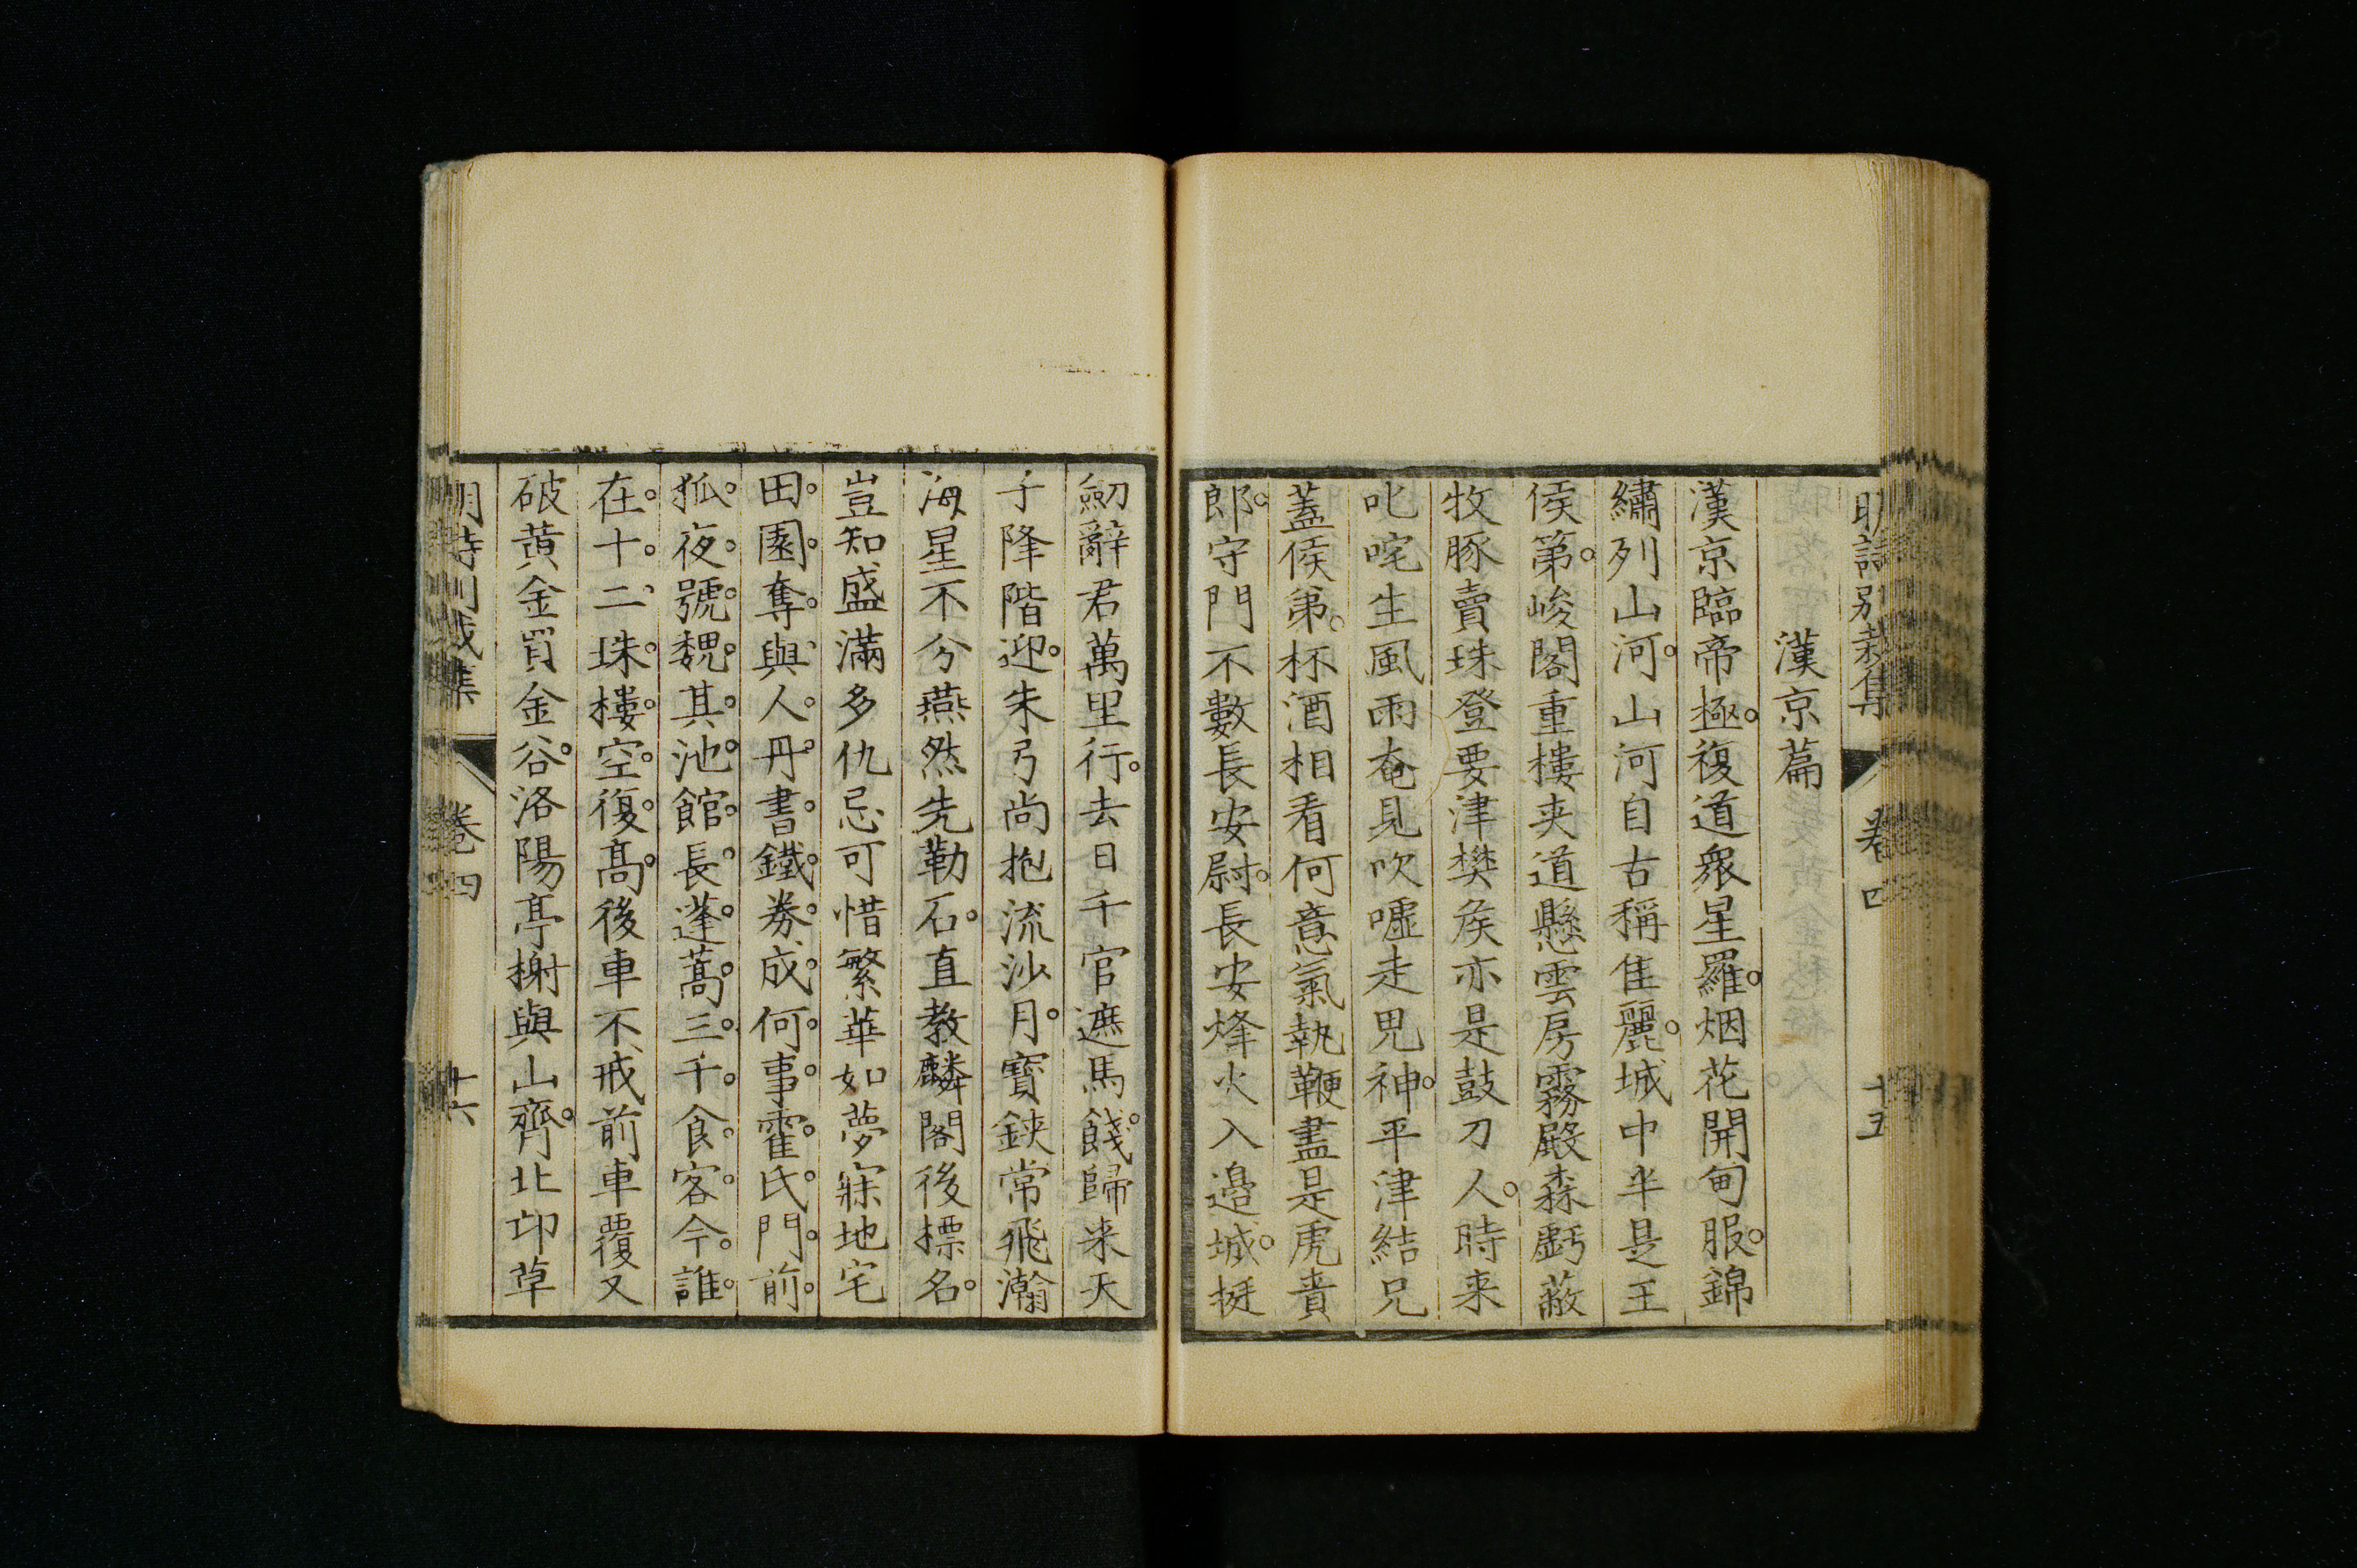 明詩別裁集 卷四 十五
漢京篇
漢京臨帝極。複道衆星羅。烟花開甸服。錦
繡列山河。山河自古稱佳麗。城中半是王
侯第。峻閣重樓夾道懸雲房霧殿森虧蔽
牧豚賣珠登要津樊侯亦是鼓刀人。時来
叱咤生風雨奄見吹噓走鬼神。平津結兄
蓋侯第。杯酒相看何意氣執鞭盡是虎賁
郎。守門不數長安尉。長安烽火入邉城。挺
劒辭君萬里行。去日千官遮馬餞。歸来天
子降階迎。朱弓尚抱流沙月。寶鋏常飛瀚
海星不分燕然先勒石。直教麟閣後標名。
豈知盛滿多仇忌可惜繁華如夢寐地宅
田。園。奪。與、人。丹。書。鐵。券。成。何。事。霍。氏。門。前。
狐。夜。號。魏。其。池。館。長。蓬。蒿。三。千。食。客。今。誰。
在。十。二、珠。樓。空。復。高。後車不戒前車覆又
破黄金買金谷。洛陽亭榭與山齊。北邙草
明詩別裁集 卷四 十六